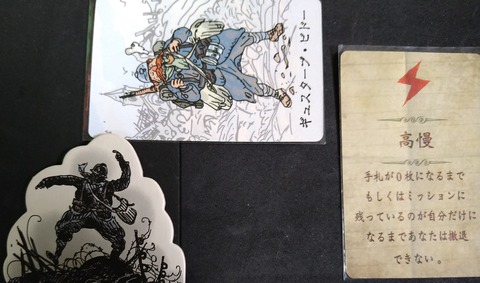 ギュスターブ・ビドー
高慢
手札が0枚になるまで
もしくはミッションに
残っているのが自分だけに
なるまであなたは撤退
できない。